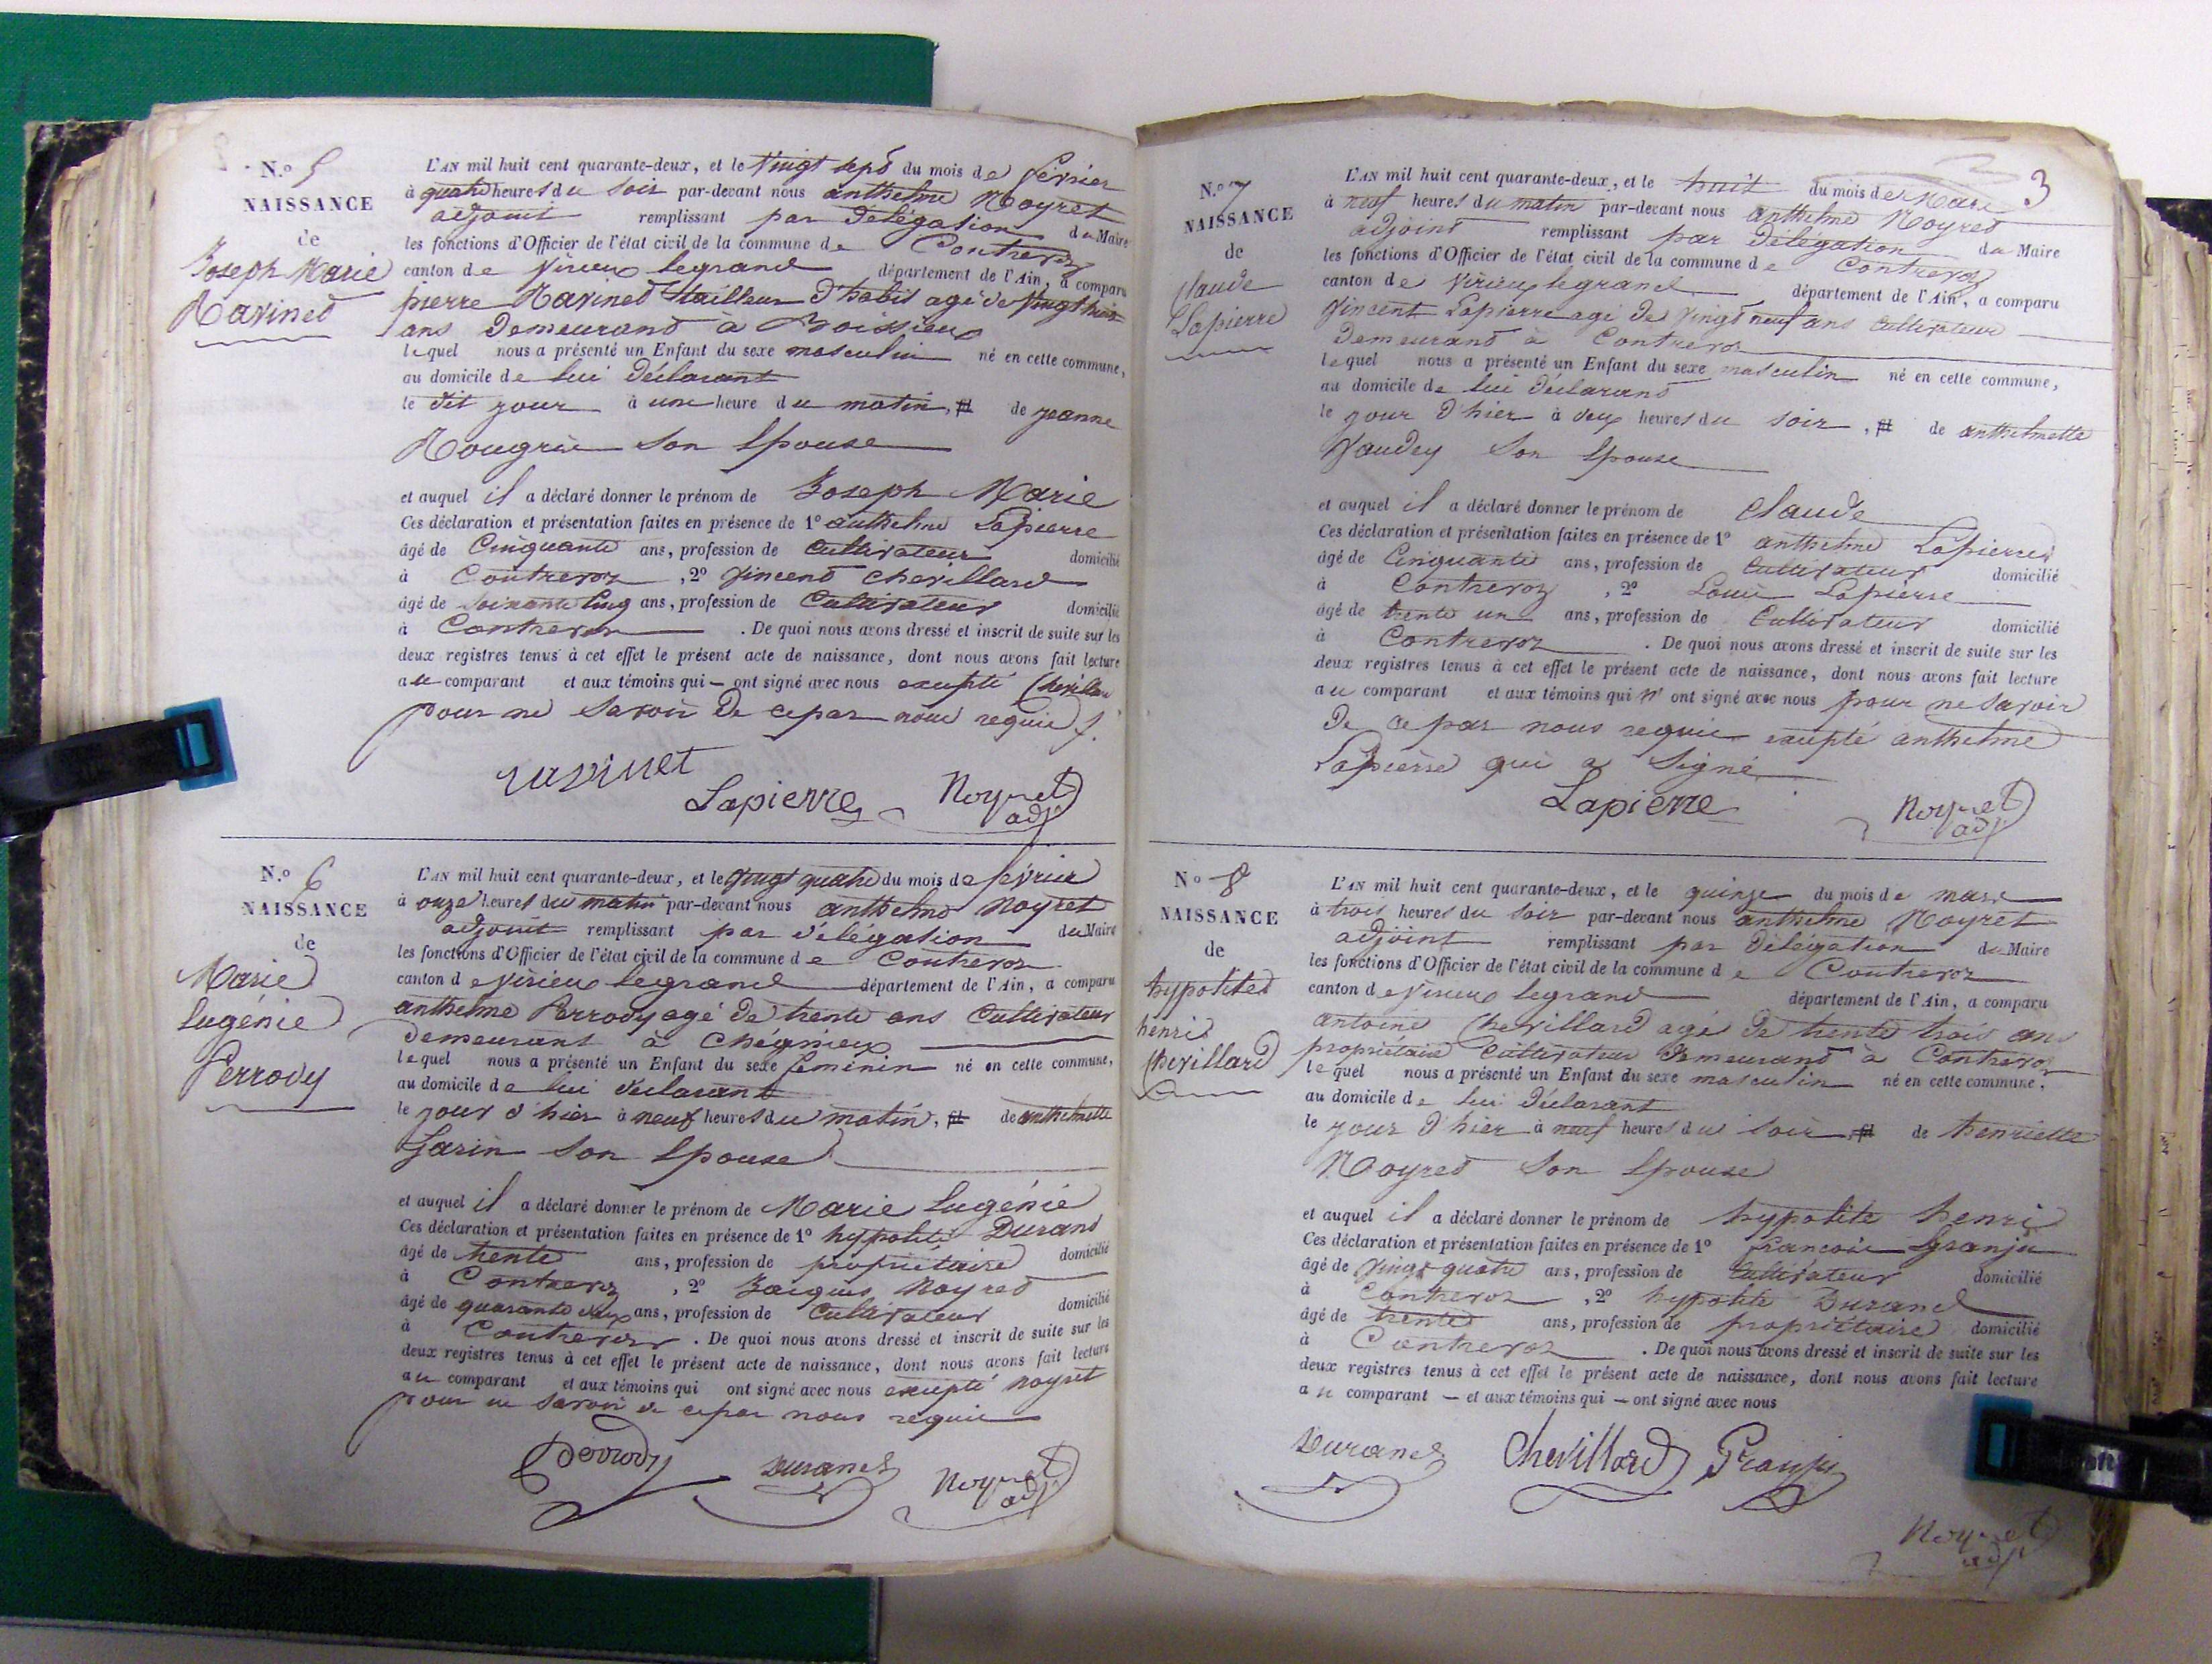 N.º 5
NAISSANCE
de
Joseph Marie
Ravinet
L'AN mil huit cent quarante-deux, et le vingt sept du mois de février
à quatre heures du soir par-devant nous anthelme Noyret
adjoint remplissant par délégation du Maire
les fonctions d'Officier de l'état civil de la commune de Contrevoz
canton de Virieu legrand département de l'Ain, a comparu
pierre Ravinet tailleur d'habit agé de vingt huit
ans demeurant à
lequel nous a présenté un Enfant du sexe masculin né en cette commune,
au domicile de lui déclarant
le dit jour à une heure du matin, de jeanne
son Epouse
et auquel il a déclaré donner le prénom de Joseph Marie
Ces déclaration et présentation faites en présence de 1º anthelme Lapierre
âgé de Cinquante ans, profession de Cultivateur domicilié
à Contrevoz, 2º Vincent Chevillard
âgé de soixante Cinq ans, profession de Cultivateur domicilié
à Contrevoz. De quoi nous avons dressé et inscrit de suite sur les
deux registres tenus à cet effet le présent acte de naissance, dont nous avons fait lecture
au comparant et aux témoins qui — ont signé avec nous excepté Chevillard
pour ne savoir de ce par nous requis
ravinet
Lapierre
Noyret
adj
N.º 6
NAISSANCE
de
Marie
Eugénie
Perrody
L'AN mil huit cent quarante-deux, et le vingt quatre du mois de février
à onze heures du matin par-devant nous anthelme Noyret
adjoint remplissant par délégation du Maire
les fonctions d'Officier de l'état civil de la commune de Contrevoz
canton de Virieu legrand département de l'Ain, a comparu
anthelme Perrody agé de trente ans Cultivateur
demeurant à Chégnieux
lequel nous a présenté un Enfant du sexe féminin né en cette commune,
au domicile de lui déclarant
le jour d'hier à neuf heures du matin, de anthelmette
Garin son Epouse
et auquel il a déclaré donner le prénom de Marie Eugénie
Ces déclaration et présentation faites en présence de 1º hypolite Durand
âgé de trente ans, profession de propriétaire domicilié
à Contrevoz, 2º Jacques Noyret
âgé de quarante deux ans, profession de Cultivateur domicilié
à Contrevoz. De quoi nous avons dressé et inscrit de suite sur les
deux registres tenus à cet effet le présent acte de naissance, dont nous avons fait lecture
au comparant et aux témoins qui ont signé avec nous excepté Noyret
pour ne savoir de ce par nous requis
Perrody
Durand
Noyret
adj
3
N.º 7
NAISSANCE
de
Claude
Lapierre
L'AN mil huit cent quarante-deux, et le huit du mois de Mars
à neuf heures du matin par-devant nous anthelme Noyret
adjoint remplissant par délégation du Maire
les fonctions d'Officier de l'état civil de la commune de Contrevoz
canton de Virieu legrand département de l'Ain, a comparu
Vincent Lapierre agé de vingt neuf ans Cultivateur
demeurant à Contrevoz
lequel nous a présenté un Enfant du sexe masculin né en cette commune,
au domicile de lui déclarant
le jour d'hier à deux heures du soir, de anthelmette
Vaudey son Epouse
et auquel il a déclaré donner le prénom de Claude
Ces déclaration et présentation faites en présence de 1º anthelme Lapierre
âgé de Cinquante ans, profession de Cultivateur domicilié
à Contrevoz, 2º Louis Lapierre
âgé de trente un ans, profession de Cultivateur domicilié
à Contrevoz. De quoi nous avons dressé et inscrit de suite sur les
deux registres tenus à cet effet le présent acte de naissance, dont nous avons fait lecture
au comparant et aux témoins qui n' ont signé avec nous pour ne savoir
de ce par nous requis excepté anthelme
Lapierre qui a signé
Lapierre
Noyret
adj
Nº 8
NAISSANCE
de
hypolite
henri
Chevillard
L'AN mil huit cent quarante-deux, et le quinze du mois de mars
à trois heures du soir par-devant nous anthelme Noyret
adjoint remplissant par délégation du Maire
les fonctions d'Officier de l'état civil de la commune de Contrevoz
canton de Virieu legrand département de l'Ain, a comparu
antoine Chevillard agé de trente trois ans
propriétaire Cultivateur demeurant à Contrevoz
lequel nous a présenté un Enfant du sexe masculin né en cette commune,
au domicile de lui déclarant
le jour d'hier à neuf heures du soir, de henriette
Noyret son Epouse
et auquel il a déclaré donner le prénom de hypolite henri
Ces déclaration et présentation faites en présence de 1º francois Granju
âgé de vingt quatre ans, profession de Cultivateur domicilié
à Contrevoz, 2º hypolite Durand
âgé de trente ans, profession de propriétaire domicilié
à Contrevoz. De quoi nous avons dressé et inscrit de suite sur les
deux registres tenus à cet effet le présent acte de naissance, dont nous avons fait lecture
au comparant — et aux témoins qui — ont signé avec nous
Durand
Chevillard
Granju
Noyret
adj